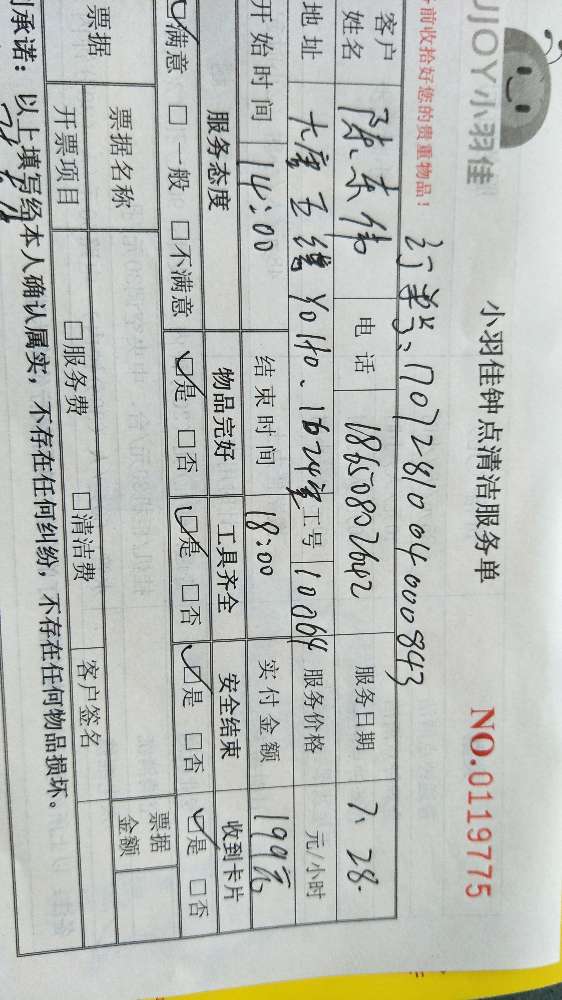 JJOY小羽佳
小羽佳钟点清洁服务单
NO.0119775
前收拾好您的贵重物品!
订单号、1707281004000843
客户姓名 陈东伟 电话 18650802642 服务日期 7、28
地址 大唐五缘 Y0110、1624室 工号 10064 服务价格 元/小时
开始时间 14:00 结束时间 18:00 实付金额 199元
服务态度 物品完好 工具齐全 安全结束 收到卡片
☑满意 □一般 □不满意 ☑是 □否 ☑是 □否 ☑是 □否 ☑是 □否
票据 票据名称 票据金额
开票项目 □服务费 □清洁费 客户签名
承诺:以上填写经本人确认属实,不存在任何纠纷,不存在任何物品损坏。